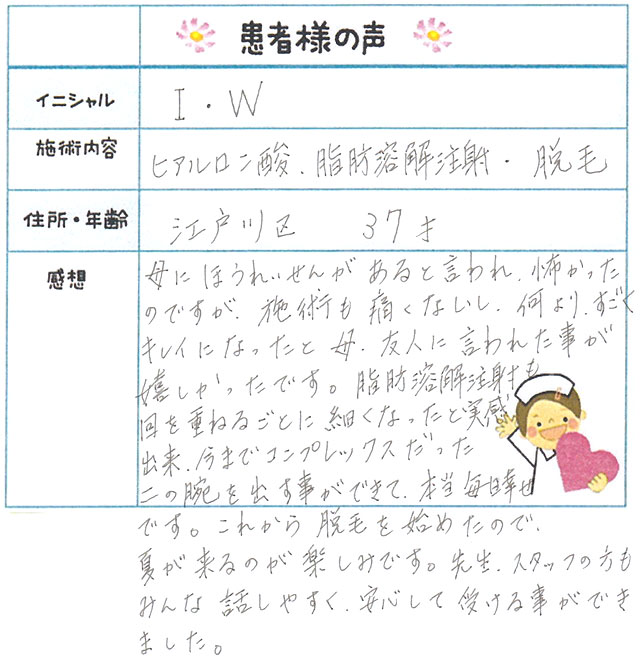 患者様の声
イニシャル I・W
施術内容 ヒアルロン酸、脂肪溶解注射・脱毛
住所・年齢 江戸川区 37才
感想 母にほうれいせんがあると言われ、怖かった
のですが、施術も痛くないし、何より、すごく
キレイになったと母、友人に言われた事が
嬉しかったです。脂肪溶解注射も
回を重ねるごとに細くなったと実感
出来、今までコンプレックスだった
二の腕を出す事ができて、本当毎日幸せ
です。これから脱毛を始めたので、
夏が来るのが楽しみです。先生、スタッフの方も
みんな話しやすく、安心して受ける事ができ
ました。